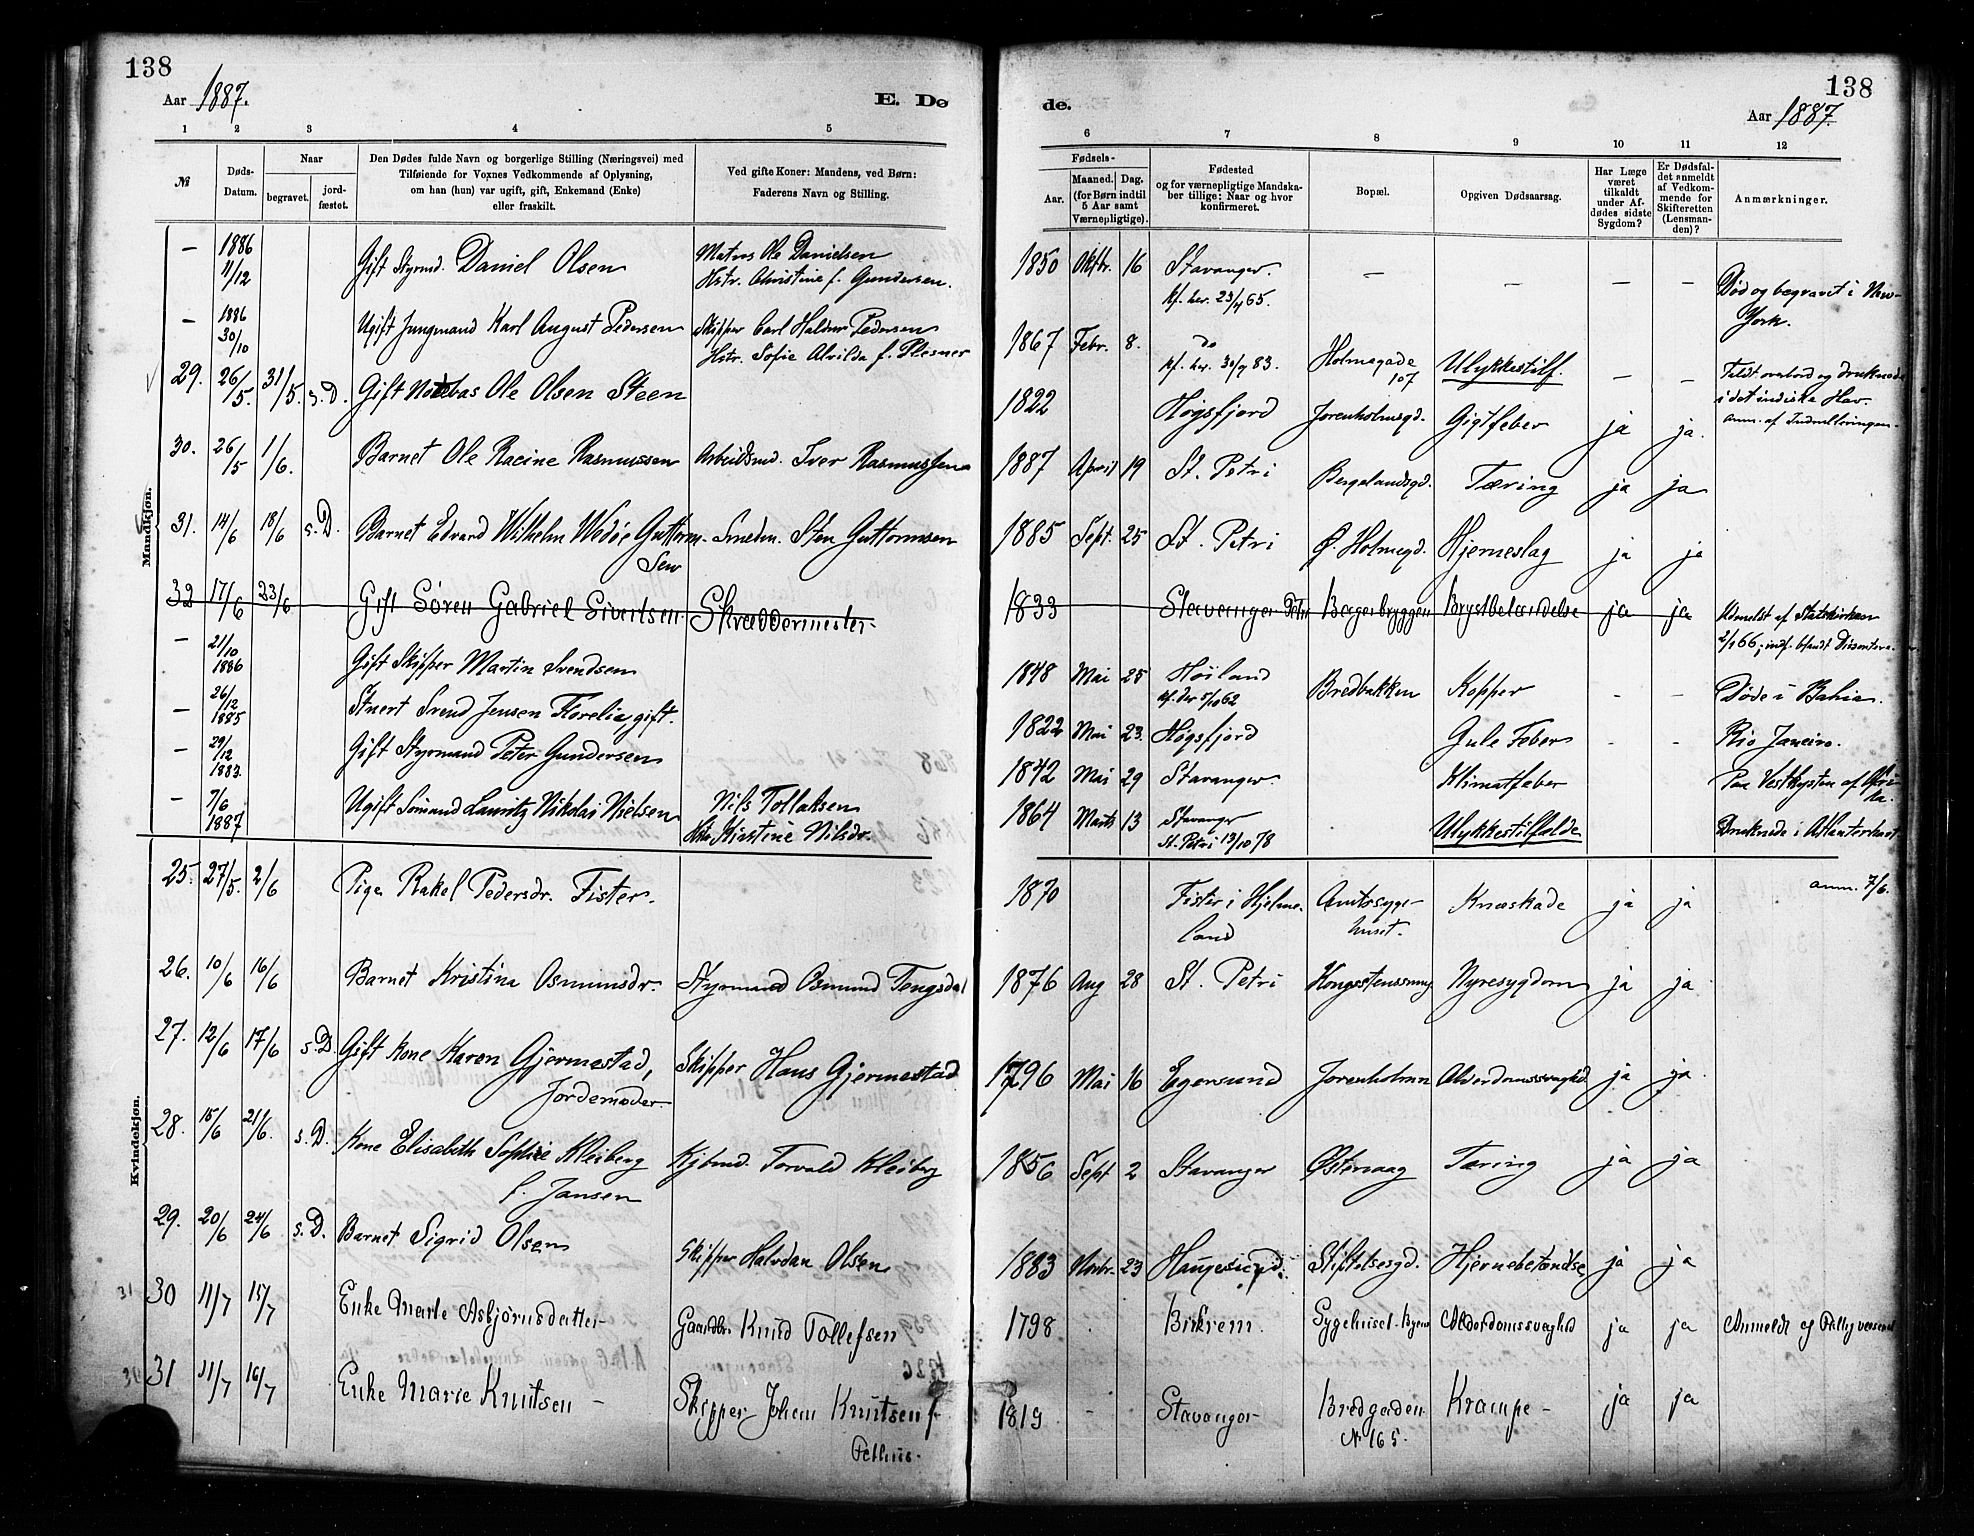 138
Aar 1887.
E. Dø
1 2 3 4 5
№
Døds-Datum.
Naar
begravet.
jord-fæstet.
Den Dødes fulde Navn og borgerlige Stilling (Næringsvei) med
Tilføiende for Voxnes Vedkommende af Oplysning,
om han (hun) var ugift, gift, Enkemand (Enke)
eller fraskilt.
Ved gifte Koner: Mandens, ved Børn:
Faderens Navn og Stilling.
Mandkjøn.
— 1886 Gift Styrmd. Daniel Olsen Matros Ole Danielsen
11/12 Hstr. Christine f. Gundersen.
— 1886 Ugift Jungmand Karl August Pedersen Skipper Carl Pedersen
30/10 Hstr. Sofie Alvilda f. Plesner
29. 26/5. 31/5. s.D. Gift Notebas Ole Olsen Steen
30. 26/5 1/6. Barnet Ole Racine Rasmussen Arbeidsmd. Iver Rasmussen
31. 14/6 18/6 s.D. Barnet Edvard Wilhelm Wedøe Guttorm- Smedm. Sten Guttormsen
sen
32 17/6 23/6 Gift Sören Gabriel Sivertsen Skræddermester
— 21/10 1886 Gift Skipper Martin Svendsen
— 26/12 1885 Stuert Svend Jensen Florelia, gift.
— 29/12 1883. Gift Styrmand Peter Gundersen
— 7/6 1887 Ugift Sømand Lauritz Nikolai Nielsen Nils Tollaksen
Hstr. Kirstine Nilsdr.
Kvindekjøn.
25. 27/5. 2/6 Pige Rakel Pedersdr. Fister.
26. 10/6 16/6 Barnet Kristina Osmundsdr. Styrmand Osmund Tengsdal
27. 12/6 17/6 s.D. Gift Kone Karen Gjermestad, Skipper Hans Gjermestad
Jordemoder.
28. 15/6 21/6. s.D. Kone Elisabeth Sophie Kleiberg Kjbmd. Torvald Kleiberg
f. Jansen
29. 20/6 24/6 s.D. Barnet Sigrid Olsen Skipper Halvdan Olsen
31 30 11/7 15/7 Enke Marte Asbjörnsdatter Gaardbr. Knud Tollefsen
31 11/7 16/7 Enke Marie Knutsen — Skipper Johan Knutsen f.
138
de.
Aar 1887.
6 7 8 9 10 11 12
Fødsels-
Aar.
Maaned. Dag.
(for Børn indtil
5 Aar samt
Værnepligtige).
Fødested
og for værnepligtige Mandska-
ber tillige: Naar og hvor
konfirmeret.
Bopæl.
Opgiven Dødsaarsag.
Har Læge
været
tilkaldt
under Af-
dødes sidste
Sygdom?
Er Dødsfal-
det anmeldt
af Vedkom-
mende for
Skifteretten
(Lensman-
den)?
Anmærkninger.
1850 Oktbr. 16 Stavanger. — — — — Død og begravet i New-
kf. her. 23/4 65. York.
1867 Febr. 8. do Holmegade Ulykkestilf. — — Faldt overbord og druknede
kf. her. 30/9 83. 107 i det indiske Hav.
anm. af Indrulleringen.
1822 Høgsfjord Jorenholmsgd. Gigtfeber ja ja.
1887 April 19 St. Petri Bergelandsgd. Tæring ja ja
1885 Sept. 25 St. Petri Ø. Holmegd. Hjerneslag ja ja
1833 Stavanger Petri Børgerbryggen Brystbetændelse ja ja Udmeldt af Statskirken
2/1 66; indf. blandt Dissentere
1848 Mai 25 Høiland Bredbakken Kopper - - Døde i Bahia.
kf. der 5/10 62
1822 Mai 23. Høgsfjord Gule Feber - - Rio Janeiro.
1842 Mai 29 Stavanger Klimatfeber Paa Vestkysten af Afri-
ka.
1864 Marts 13 Stavanger Ulykkestilfælde Druknede i Atlanterhavet
St. Petri 13/10 78
anm. 7/6.
1870 Fister i Hjelme- Amtssyge- Knæskade ja ja
land huset.
1876 Aug 28 St. Petri Nyresygdom ja ja
1796 Mai 16 Egersund Jorenholmen Alderdomssvaghed ja ja
1856 Sept 2 Stavanger Østervaag Tæring ja ja
1883 Novbr. 23 Haugesund. Stiftelsesgd. Hjernebetændelse ja ja
1798 Birkrem. Sygehuset Byens Alderdomssvaghed ja ja Anmeldt af
1819 - - Stavanger Bredgaden Krampe - ja ja
№ 165.